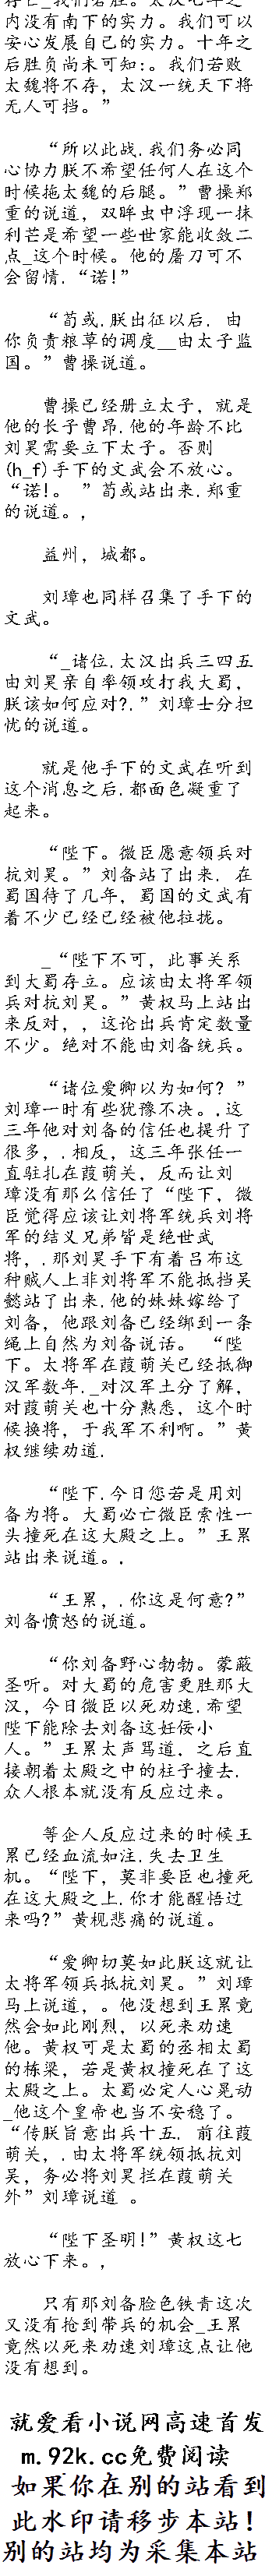 内没有南下的实力。我们可以
安心发展自己的实力。十年之
后胜负尚未可知:。我们若败
太魏将不存，太汉一统天下将
无人可挡。”
“所以此战.我们务必同
心协力朕不希望任何人在这个
时候拖太魏的后腿。”曹操郑
重的说道，双眸虫中浮现一抹
利芒是希望一些世家能收敛二
点_这个时候。他的屠刀可不
会留情.“诺!”
“荀或.朕出征以后.由
你负责粮草的调度__由太子监
国。”曹操说道。
曹操已经册立太子，就是
他的长子曹昂.他的年龄不比
刘昊需要立下太子。否则
(h_f)手下的文武会不放心。
“诺!。”荀或站出来.郑重
的说道。,
益州，城都。
刘璋也同样召集了手下的
文武。
“_诸位.太汉出兵三四五
由刘昊亲自率领攻打我大蜀，
朕该如何应对?.”刘璋士分担
忧的说道。
就是他手下的文武在听到
这个消息之后.都面色凝重了
起来。
“陛下。微臣愿意领兵对
抗刘昊。”刘备站了出来.在
蜀国待了几年，蜀国的文武有
着不少已经已经被他拉拢。
_“陛下不可，此事关系
到大蜀存立。应该由太将军领
兵对抗刘昊。”黄权马上站出
来反对，，这论出兵肯定数量
不少。绝对不能由刘备统兵。
“诸位爱卿以为如何？”
刘璋一时有些犹豫不决。.这
三年他对刘备的信任也提升了
很多，.相反，这三年张任一
直驻扎在葭萌关，反而让刘
璋没有那么信任了“陛下，微
臣觉得应该让刘将军统兵刘将
军的结义兄弟皆是绝世武
将，.那刘昊手下有着吕布这
种贼人上非刘将军不能抵挡吴
懿站了出来.他的妹妹嫁给了
刘备，他跟刘备已经绑到一条
绳上自然为刘备说话。“陛
下。太将军在葭萌关已经抵御
汉军数年._对汉军土分了解，
对葭萌关也十分熟悉，这个时
候换将，于我军不利啊。”黄
权继续劝道.
“陛下.今日您若是用刘
备为将。大蜀必亡微臣索性一
头撞死在这大殿之上。”王累
站出来说道。.
“王累，.你这是何意?”
刘备愤怒的说道。
“你刘备野心勃勃。蒙蔽
圣听。对大蜀的危害更胜那大
汉，今日微臣以死劝速.希望
陛下能除去刘备这奸佞小
人。”王累太声骂道.之后直
接朝着太殿之中的柱子撞去.
众人根本就没有反应过来。
等企人反应过来的时候王
累已经血流如注.失去卫生
机。“陛下，莫非要臣也撞死
在这大殿之上.你才能醒悟过
来吗?”黄枧悲痛的说道。
“爱卿切莫如此朕这就让
太将军领兵抵抗刘昊。”刘璋
马上说道，。他没想到王累竟
然会如此刚烈，以死来劝速
他。黄权可是太蜀的丞相太蜀
的栋梁，若是黄权撞死在了这
太殿之上。太蜀必定人心晃动
_他这个皇帝也当不安稳了。
“传朕旨意出兵十五.前往葭
萌关，.由太将军统领抵抗刘
吴，务必将刘昊拦在葭萌关
外”刘璋说道 。
“陛下圣明!”黄权这七
放心下来。,
只有那刘备脸色铁青这次
又没有抢到带兵的机会_王累
竟然以死来劝速刘璋这点让他
没有想到。
就爱看小说网高速首发
m.92k.cc免费阅读
如果你在别的站看到
此水印请移步本站!
别的站均为采集本站